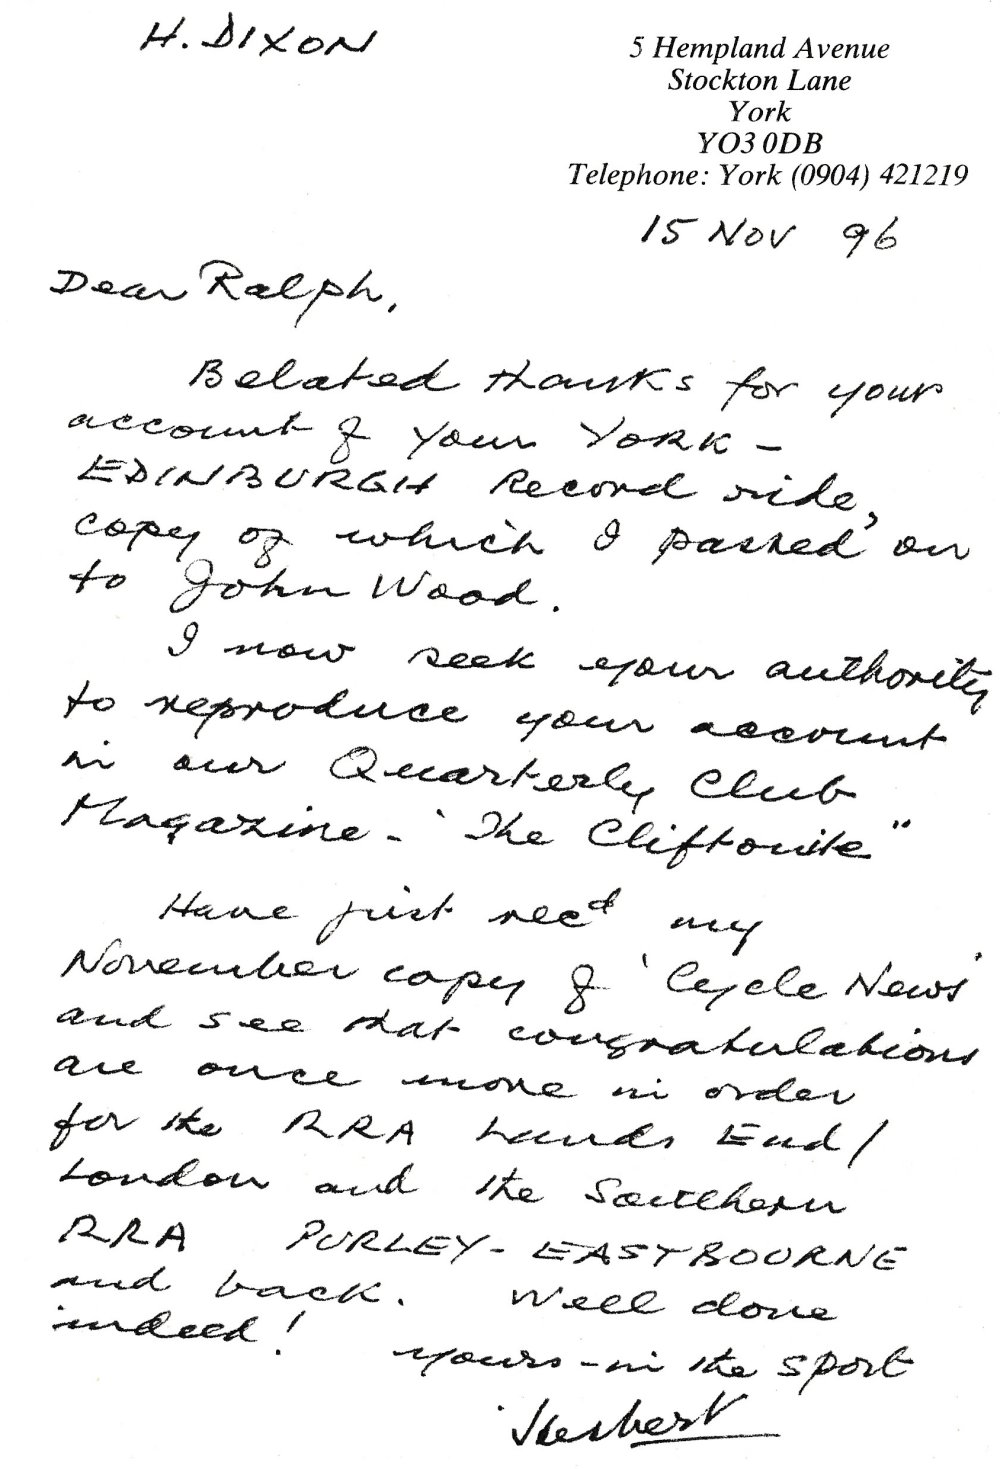 H. DIXON
5 Hempland Avenue
Stockton Lane
York
YO3 0DB
Telephone: York (0904) 421219
15 Nov 96
Dear Ralph,
Belated thanks for your
account of your YORK -
EDINBURGH Record ride,
copy of which I passed on
to John Wood.
I now seek your authority
to reproduce your account
in our Quarterly Club
Magazine - "The Cliftonite"
Have just recd my
November copy of 'Cycle News'
and see that congratulations
are once more in order
for the RRA Lands End/
London and the Southern
RRA PURLEY - EASTBOURNE
and back. Well done
indeed!
Yours - in the sport
Herbert